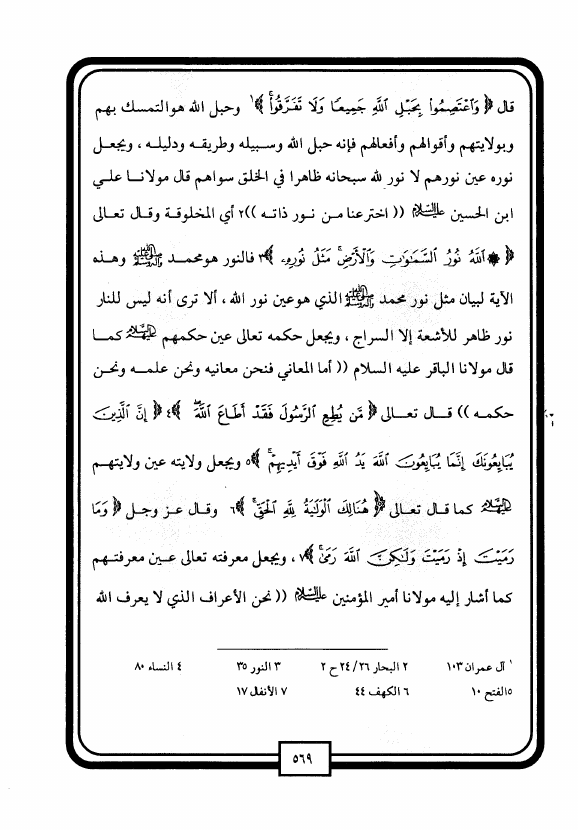 قال ﴿ وَٱعْتَصِمُوا۟ بِحَبْلِ ٱللَّهِ جَمِيعًا وَلَا تَفَرَّقُوا۟ ۚ ﴾١ وحبل الله هو التمسك بهم
وبولايتهم وأقوالهم وأفعالهم فإنه حبل الله وسبيله وطريقه ودليله ، ويجعل
نوره عين نورهم لا نور لله سبحانه ظاهرا في الخلق سواهم قال مولانا علي
ابن الحسين عليه السلام (( اخترعنا من نور ذاته ))٢ أي المخلوقة وقال تعالى
﴿ ۞ ٱللَّهُ نُورُ ٱلسَّمَـٰوَٰتِ وَٱلْأَرْضِ ۚ مَثَلُ نُورِهِۦ ﴾٣ فالنور هو محمد صلى الله عليه وآله وهذه
الآية لبيان مثل نور محمد صلى الله عليه وآله الذي هو عين نور الله ، ألا ترى أنه ليس للنار
نور ظاهر للأشعة إلا السراج ، ويجعل حكمه تعالى عين حكمهم عليهم السلام كما
قال مولانا الباقر عليه السلام (( أما المعاني فنحن معانيه ونحن علمه ونحن
حكمه )) قال تعالى ﴿ مَّن يُطِعِ ٱلرَّسُولَ فَقَدْ أَطَاعَ ٱللَّهَ ۖ ﴾٤ ﴿ إِنَّ ٱلَّذِينَ
يُبَايِعُونَكَ إِنَّمَا يُبَايِعُونَ ٱللَّهَ يَدُ ٱللَّهِ فَوْقَ أَيْدِيهِمْ ۚ ﴾٥ ويجعل ولايته عين ولايتهم
عليهم السلام كما قال تعالى ﴿ هُنَالِكَ ٱلْوَلَـٰيَةُ لِلَّهِ ٱلْحَقِّ ۚ ﴾٦ وقال عز وجل ﴿ وَمَا
رَمَيْتَ إِذْ رَمَيْتَ وَلَـٰكِنَّ ٱللَّهَ رَمَىٰ ۚ ﴾٧ ، ويجعل معرفته تعالى عين معرفتهم
كما أشار إليه مولانا أمير المؤمنين عليه السلام (( نحن الأعراف الذي لا يعرف الله
١ آل عمران ١٠٣ ٢ البحار ٢٤/٢٦ ح ٢ ٣ النور ٣٥ ٤ النساء ٨٠
٥ الفتح ١٠ ٦ الكهف ٤٤ ٧ الأنفل ١٧
٥٦٩